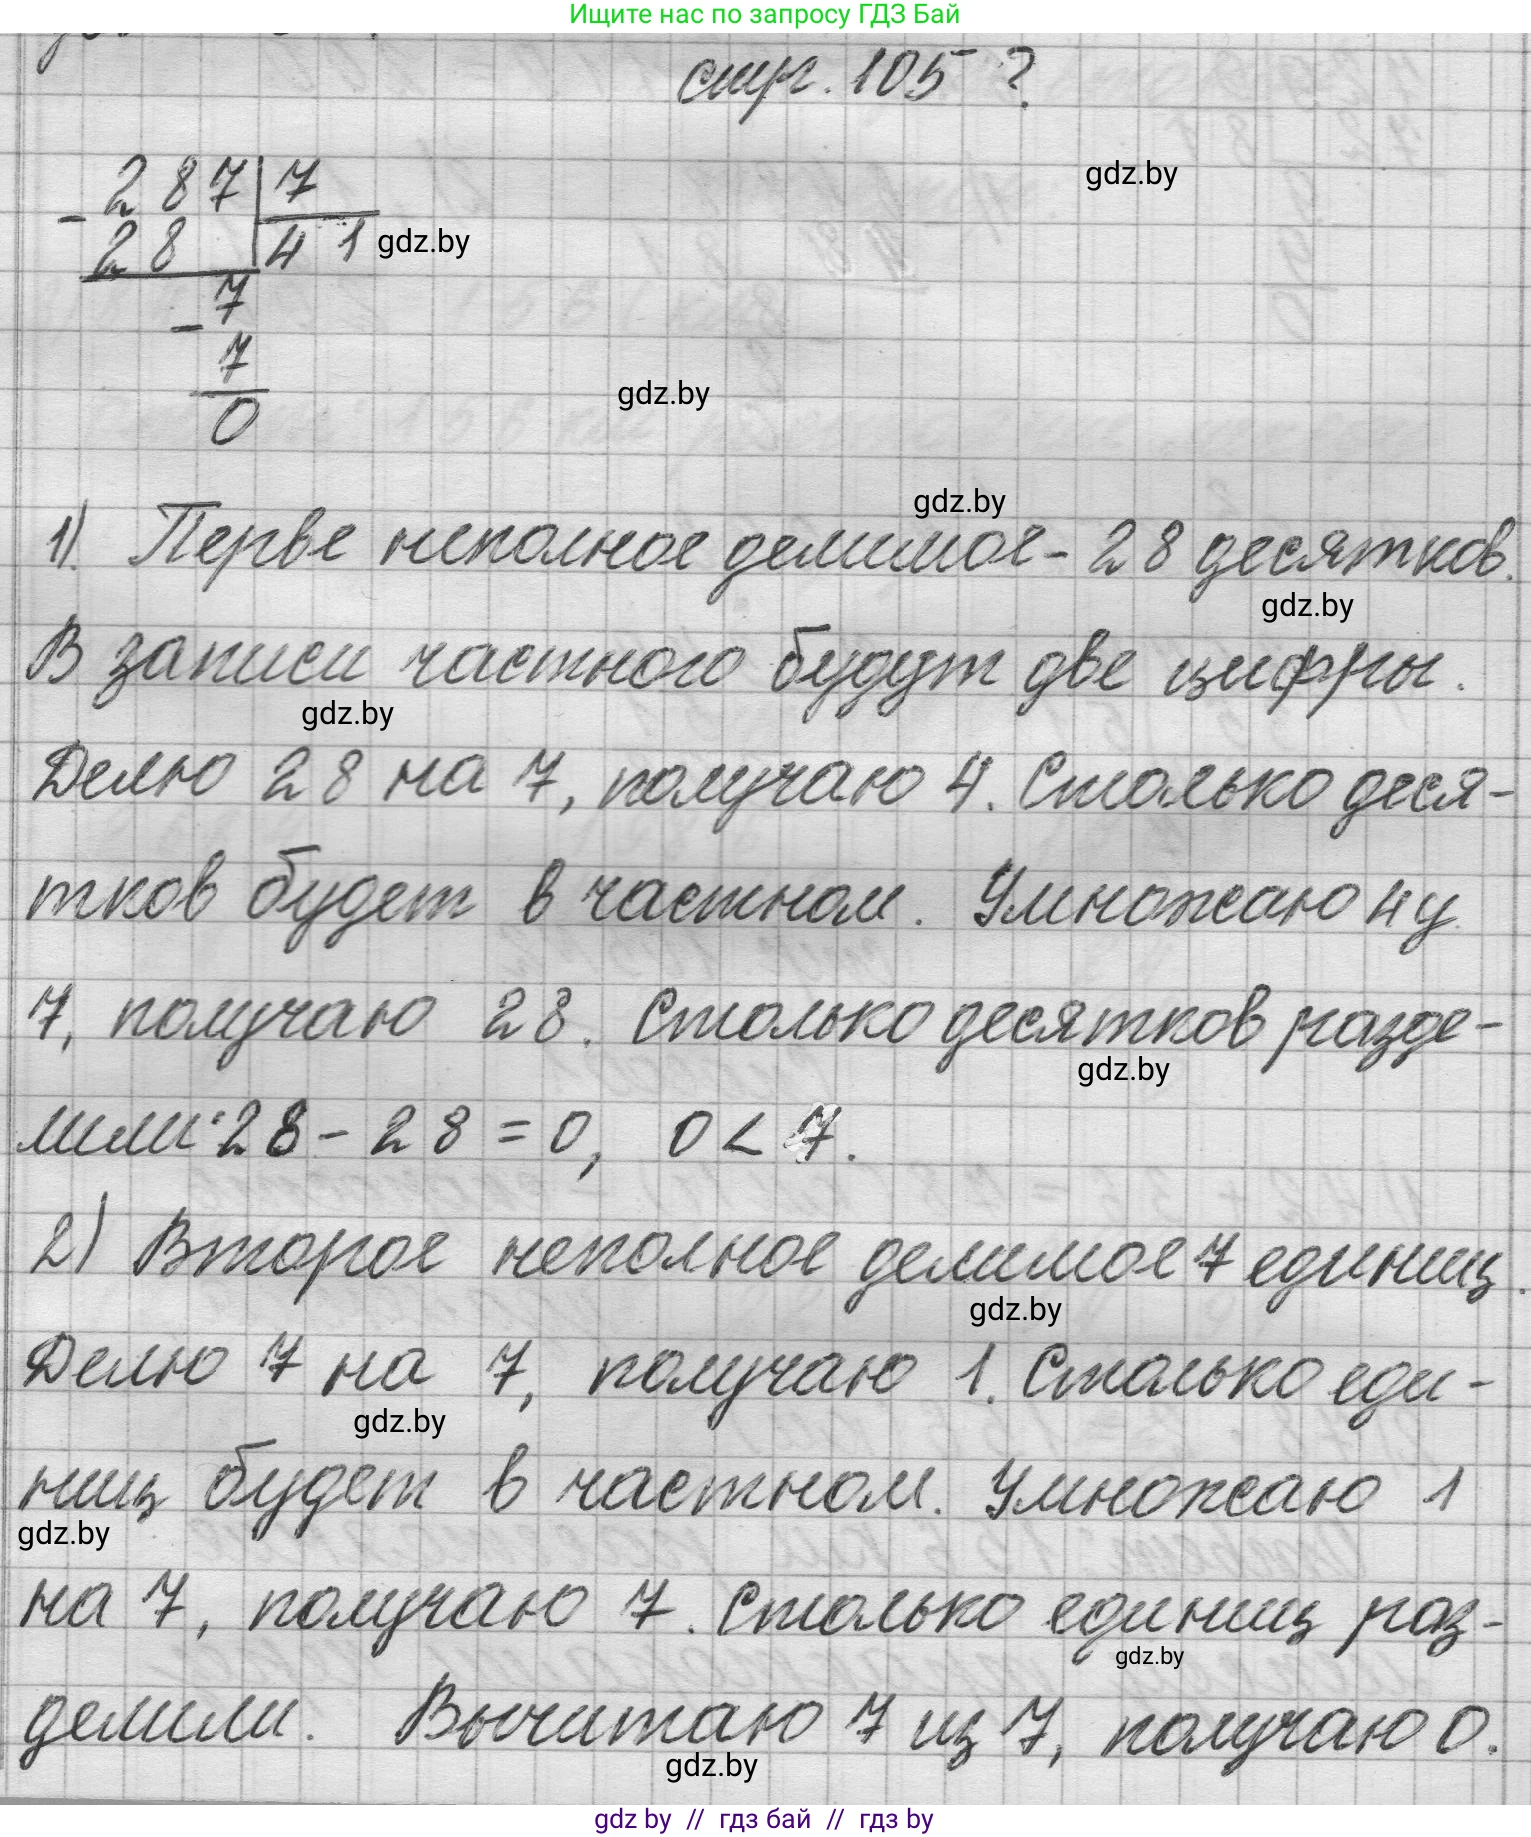 Ищите нас по запросу ГДЗ Бай
стр. 105 ?
gdz.by
- 287 | 7
28 41 gdz.by
- 7
7
gdz.by
0
gdz.by
1). Перве неполное делимое - 28 десятков.
gdz.by
В записи частного будут две цифры.
gdz.by
Делю 28 на 7, получаю 4. Столько деся-
тков будет в частном. Умножаю 4 у
7, получаю 28. Столько десятков разде-
gdz.by
лили: 28 - 28 = 0, 0 < 7.
2) Второе неполное делимое 7 единиц.
gdz.by
Делю 7 на 7, получаю 1. Столько еди-
gdz.by
ниц будет в частном. Умножаю 1
gdz.by
на 7, получаю 7. Столько единиц раз-
gdz.by
делили. Вычитаю 7 из 7, получаю 0.
gdz.by
gdz by // гдз бай // гдз by